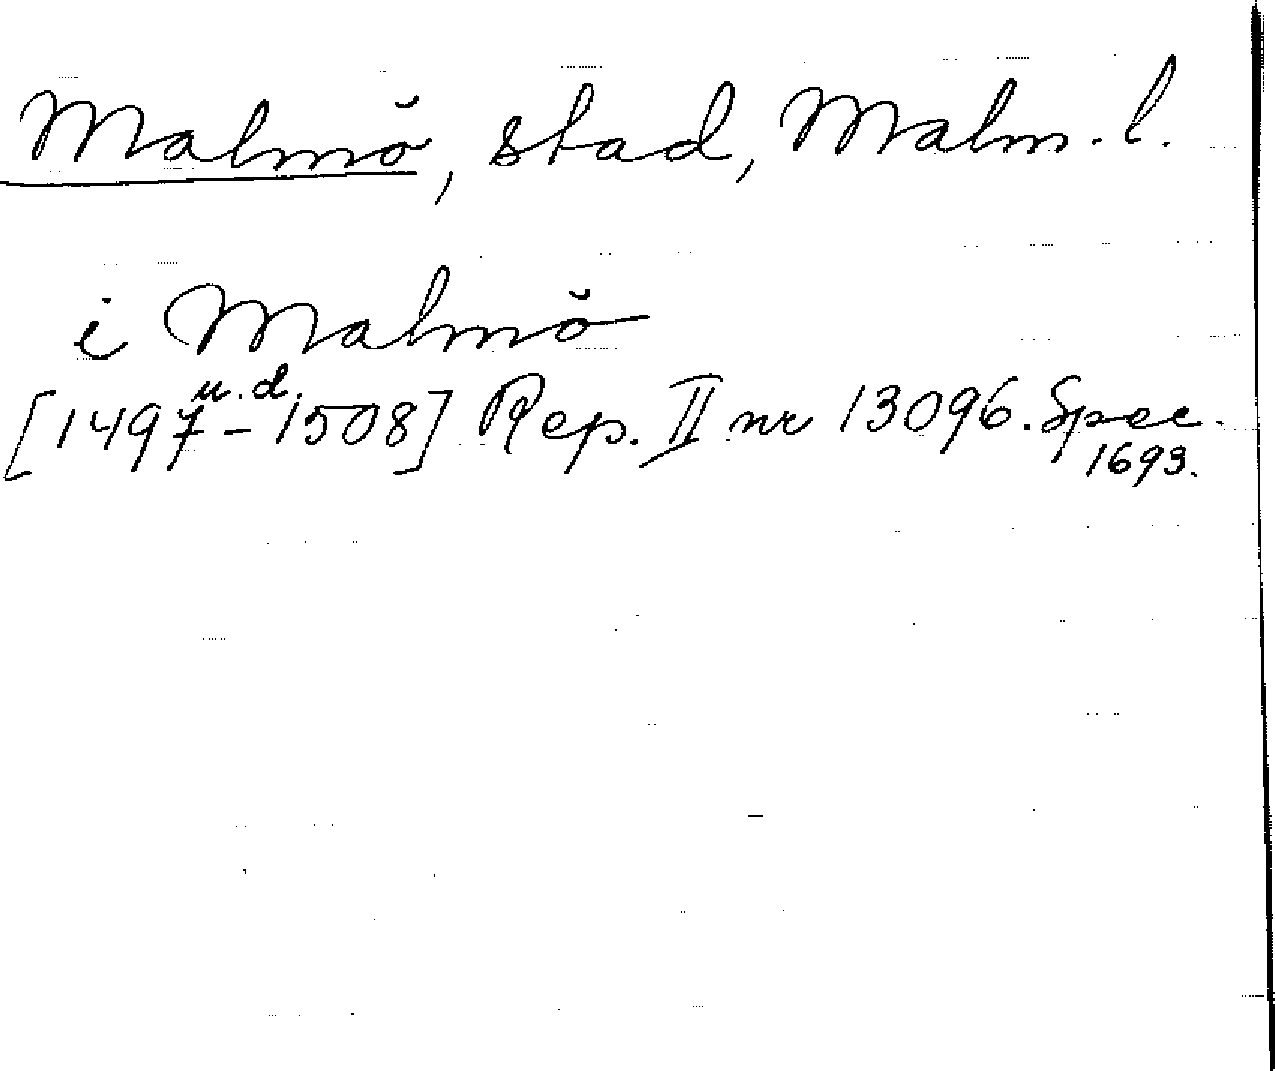 Malmö, stad, Malm. l.
i Malmö
u. d.
[1497-1508] Rep. II nr 13096. Spec.
1693.